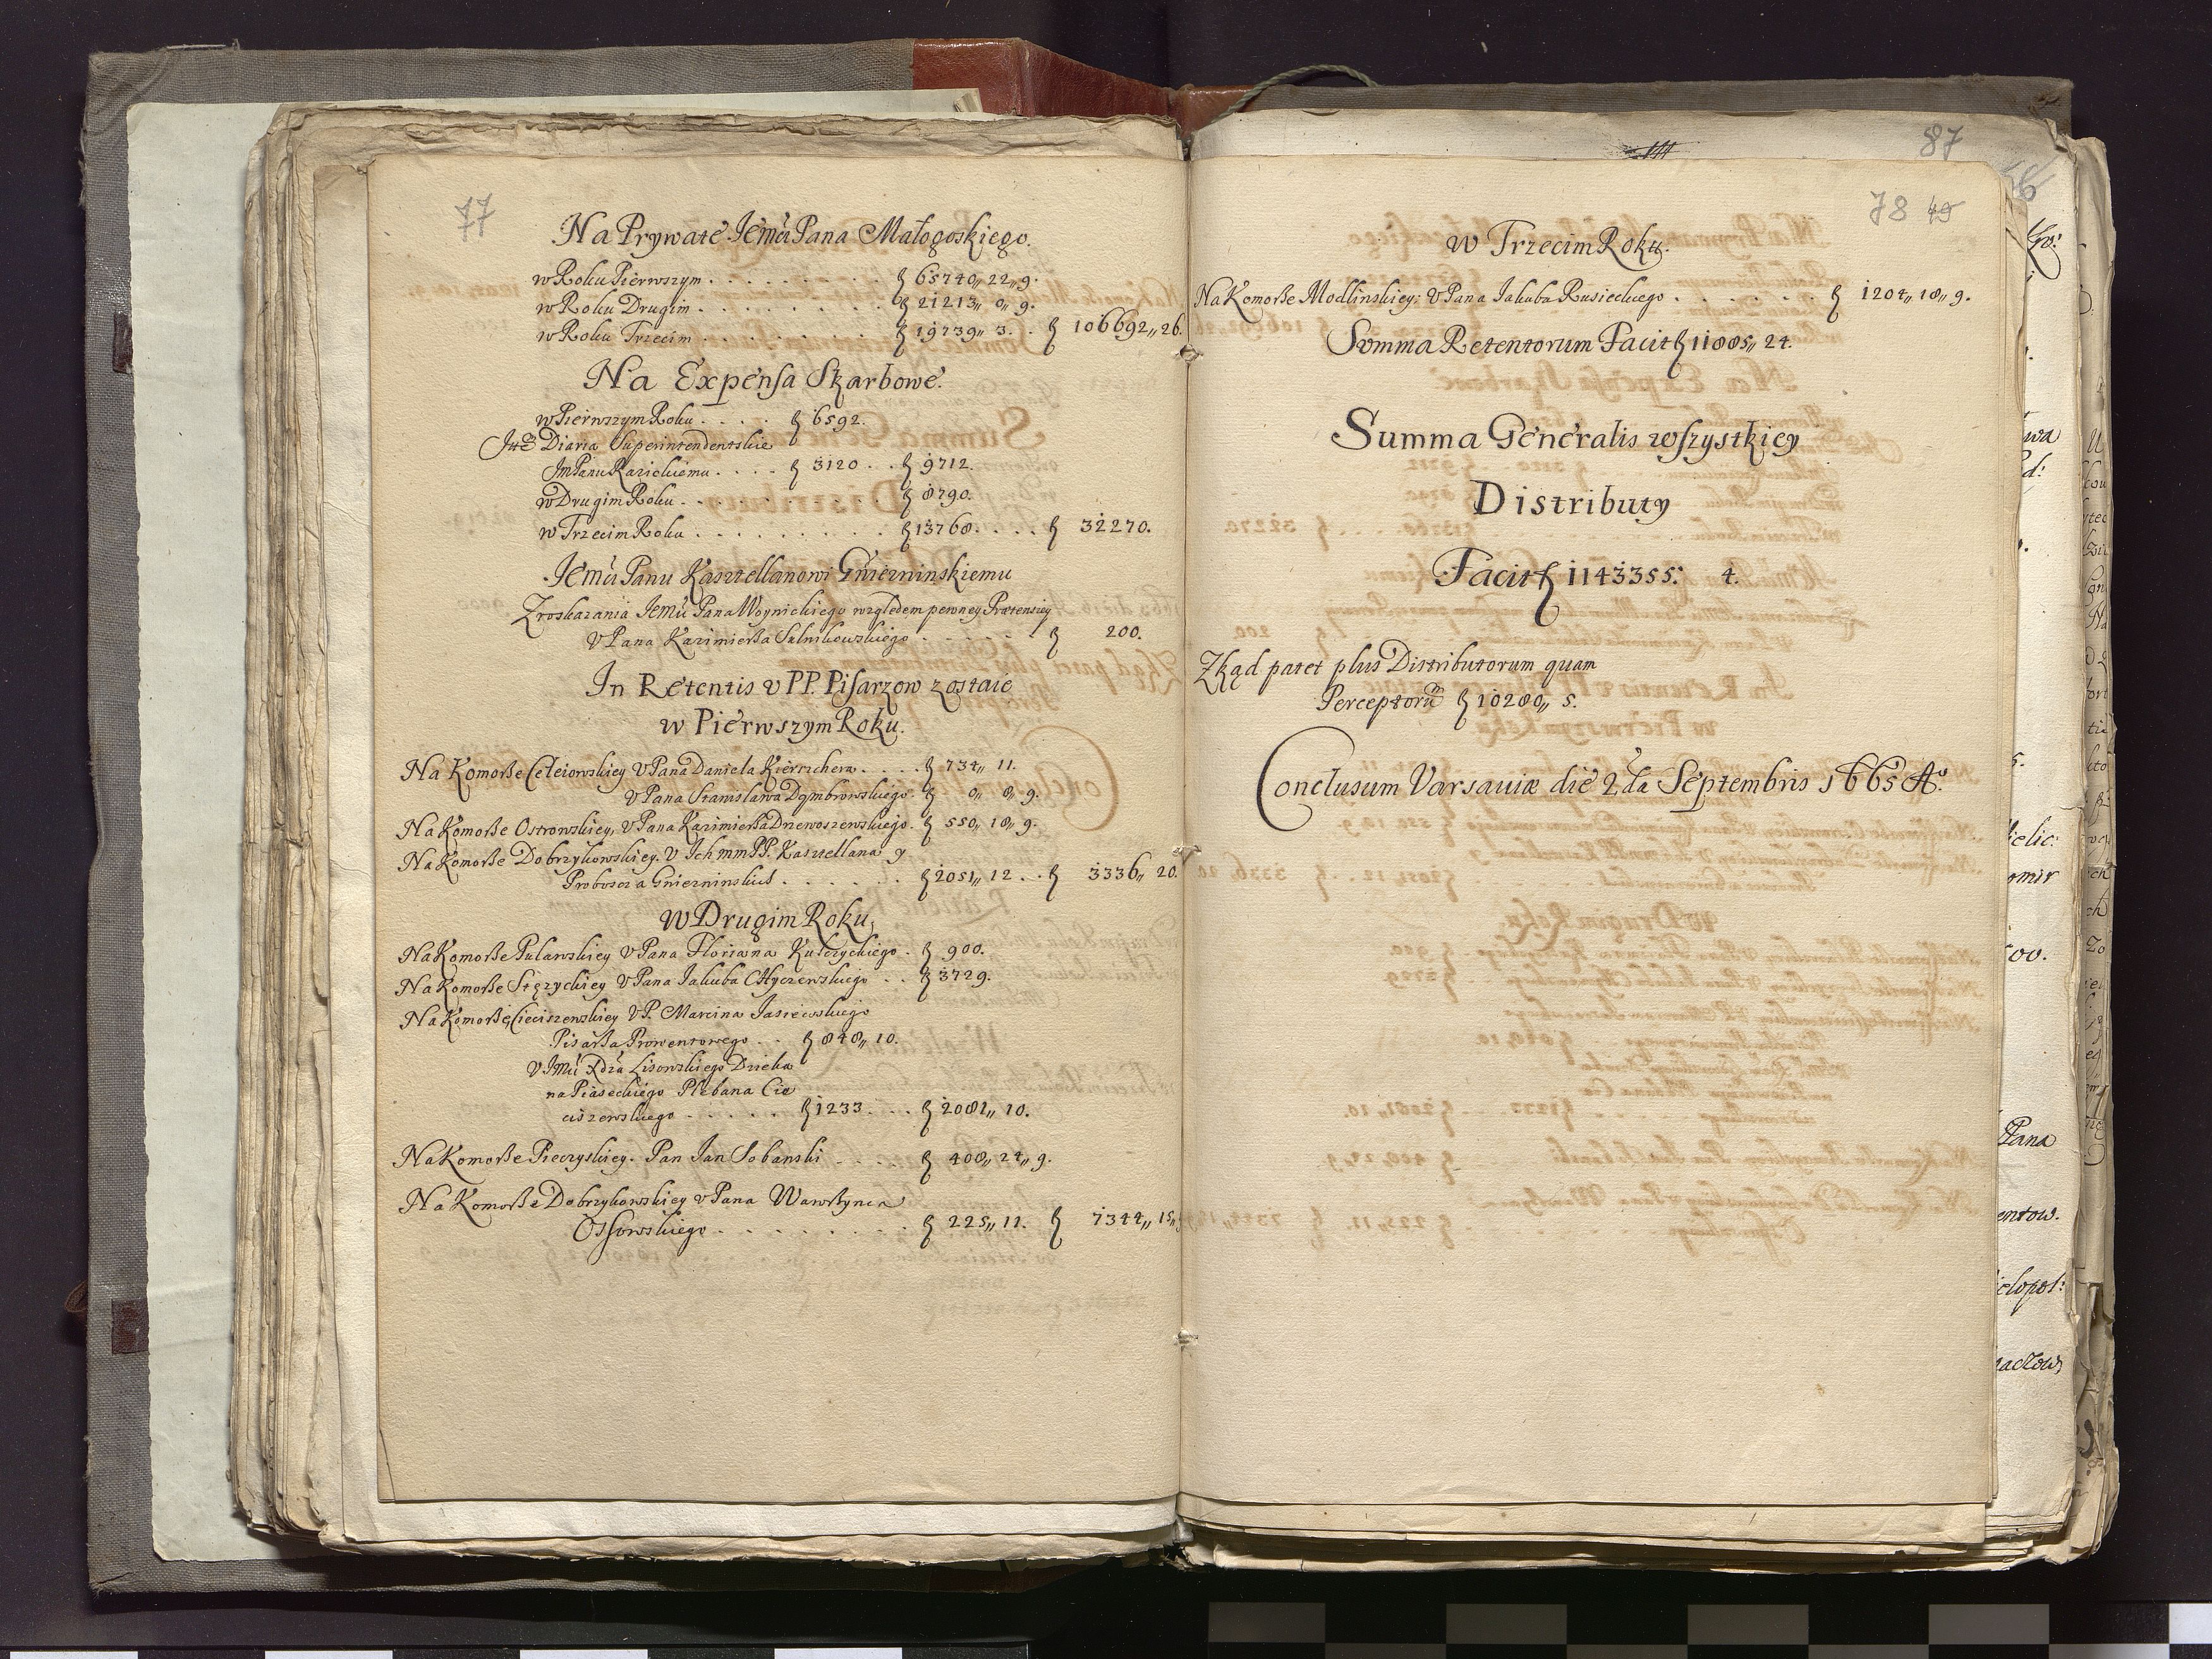 77
Na Prywatę Jemci Pana Małogoskiego.
w Roku Pierwszym . . . . . . . . . . ƒ 65740,, 22,, 9.
w Roku Drugim . . . . . . . . . . ƒ 21213,, 0,, 9.
w Roku Trzecim . . . . . . . . . . ƒ 19739,, 3. . ƒ 106692,, 26.
Na Expensa Skarbowe.
w Pierwszym Roku . . . . . ƒ 6592.
Diaria Superintendentskie
Jm Panu Razickiemu . . . . ƒ 3120 . . ƒ 9712.
w Drugim Roku . . . . . . . . . . ƒ 8790.
w Trzecim Roku . . . . . . . . . ƒ 13768. . . . . ƒ 32270.
Jemci Panu Kasztellanowi Gniezninskiemu
Z roskazania Jemci Pana Woynickiego względem pewney Prætensiey
v Pana Kazimierßa Salnikowskiego . . . . . . . ƒ 200.
In Retentis v PP. Pisarzow zostaie
w Pierwszym Roku.
Na Komorße Celeiowskiey v Pana Daniela Kierschera . . . . . ƒ 734,, 11.
v Pana Stanisława Dąmbrowskiego . ƒ 0,, 8,, 9.
Na Komorße Ostrowskiey, v Pana Kazimierßa Drzewoszewskiego. ƒ 550,, 18,, 9.
Na Komorße Dobrzykowskiey. v Ich mm PP. Kasztellana y
Proboscza Gniezninskich . . . . . . . ƒ 2051,, 12 . . ƒ 3336,, 20.
w Drugim Roku,
Na Komorße Pulawskiey v Pana Floriana Kulczyckiego . ƒ 900.
Na Komorße Stęzyckiey v Pana Jakuba Chyczewskiego . . ƒ 3729.
Na Komorße Cieciszewskiey v P. Marcina Jasiewskiego
Pisarßa Prowentowego . . ƒ 848,, 10.
v Jmci Xdza Lisowskiego Dzieka
na Piaseckiego Plebana Cie
ciszewskiego . . . . . . ƒ 1233. . . . ƒ 2081,, 10.
Na Komorße Pieczyskiey. Pan Jan Sobanski . . . . . ƒ 408,, 24,, 9.
Na Komorße Dobrzykowskiey v Pana Wawrßynca
Ossowskiego . . . . . . . . . . ƒ 225,, 11. ƒ 7344,, 15,,
87
78 49
w Trzecim Roku.
Na Komorße Modlinskiey: v Pana Jakuba Rusieckiego . . . . . . . ƒ 1204,, 18,, 9.
Summa Retentorum Facit ƒ 11885,, 24.
Summa Generalis wszystkiey
Distributy
Facit ƒ 1143355. 4.
Zkąd patet plus Distributorum quam
Perceptorũ ƒ 10280,, 5.
Conclusum Varsaviæ die 2da Septembris 1665 Ao.